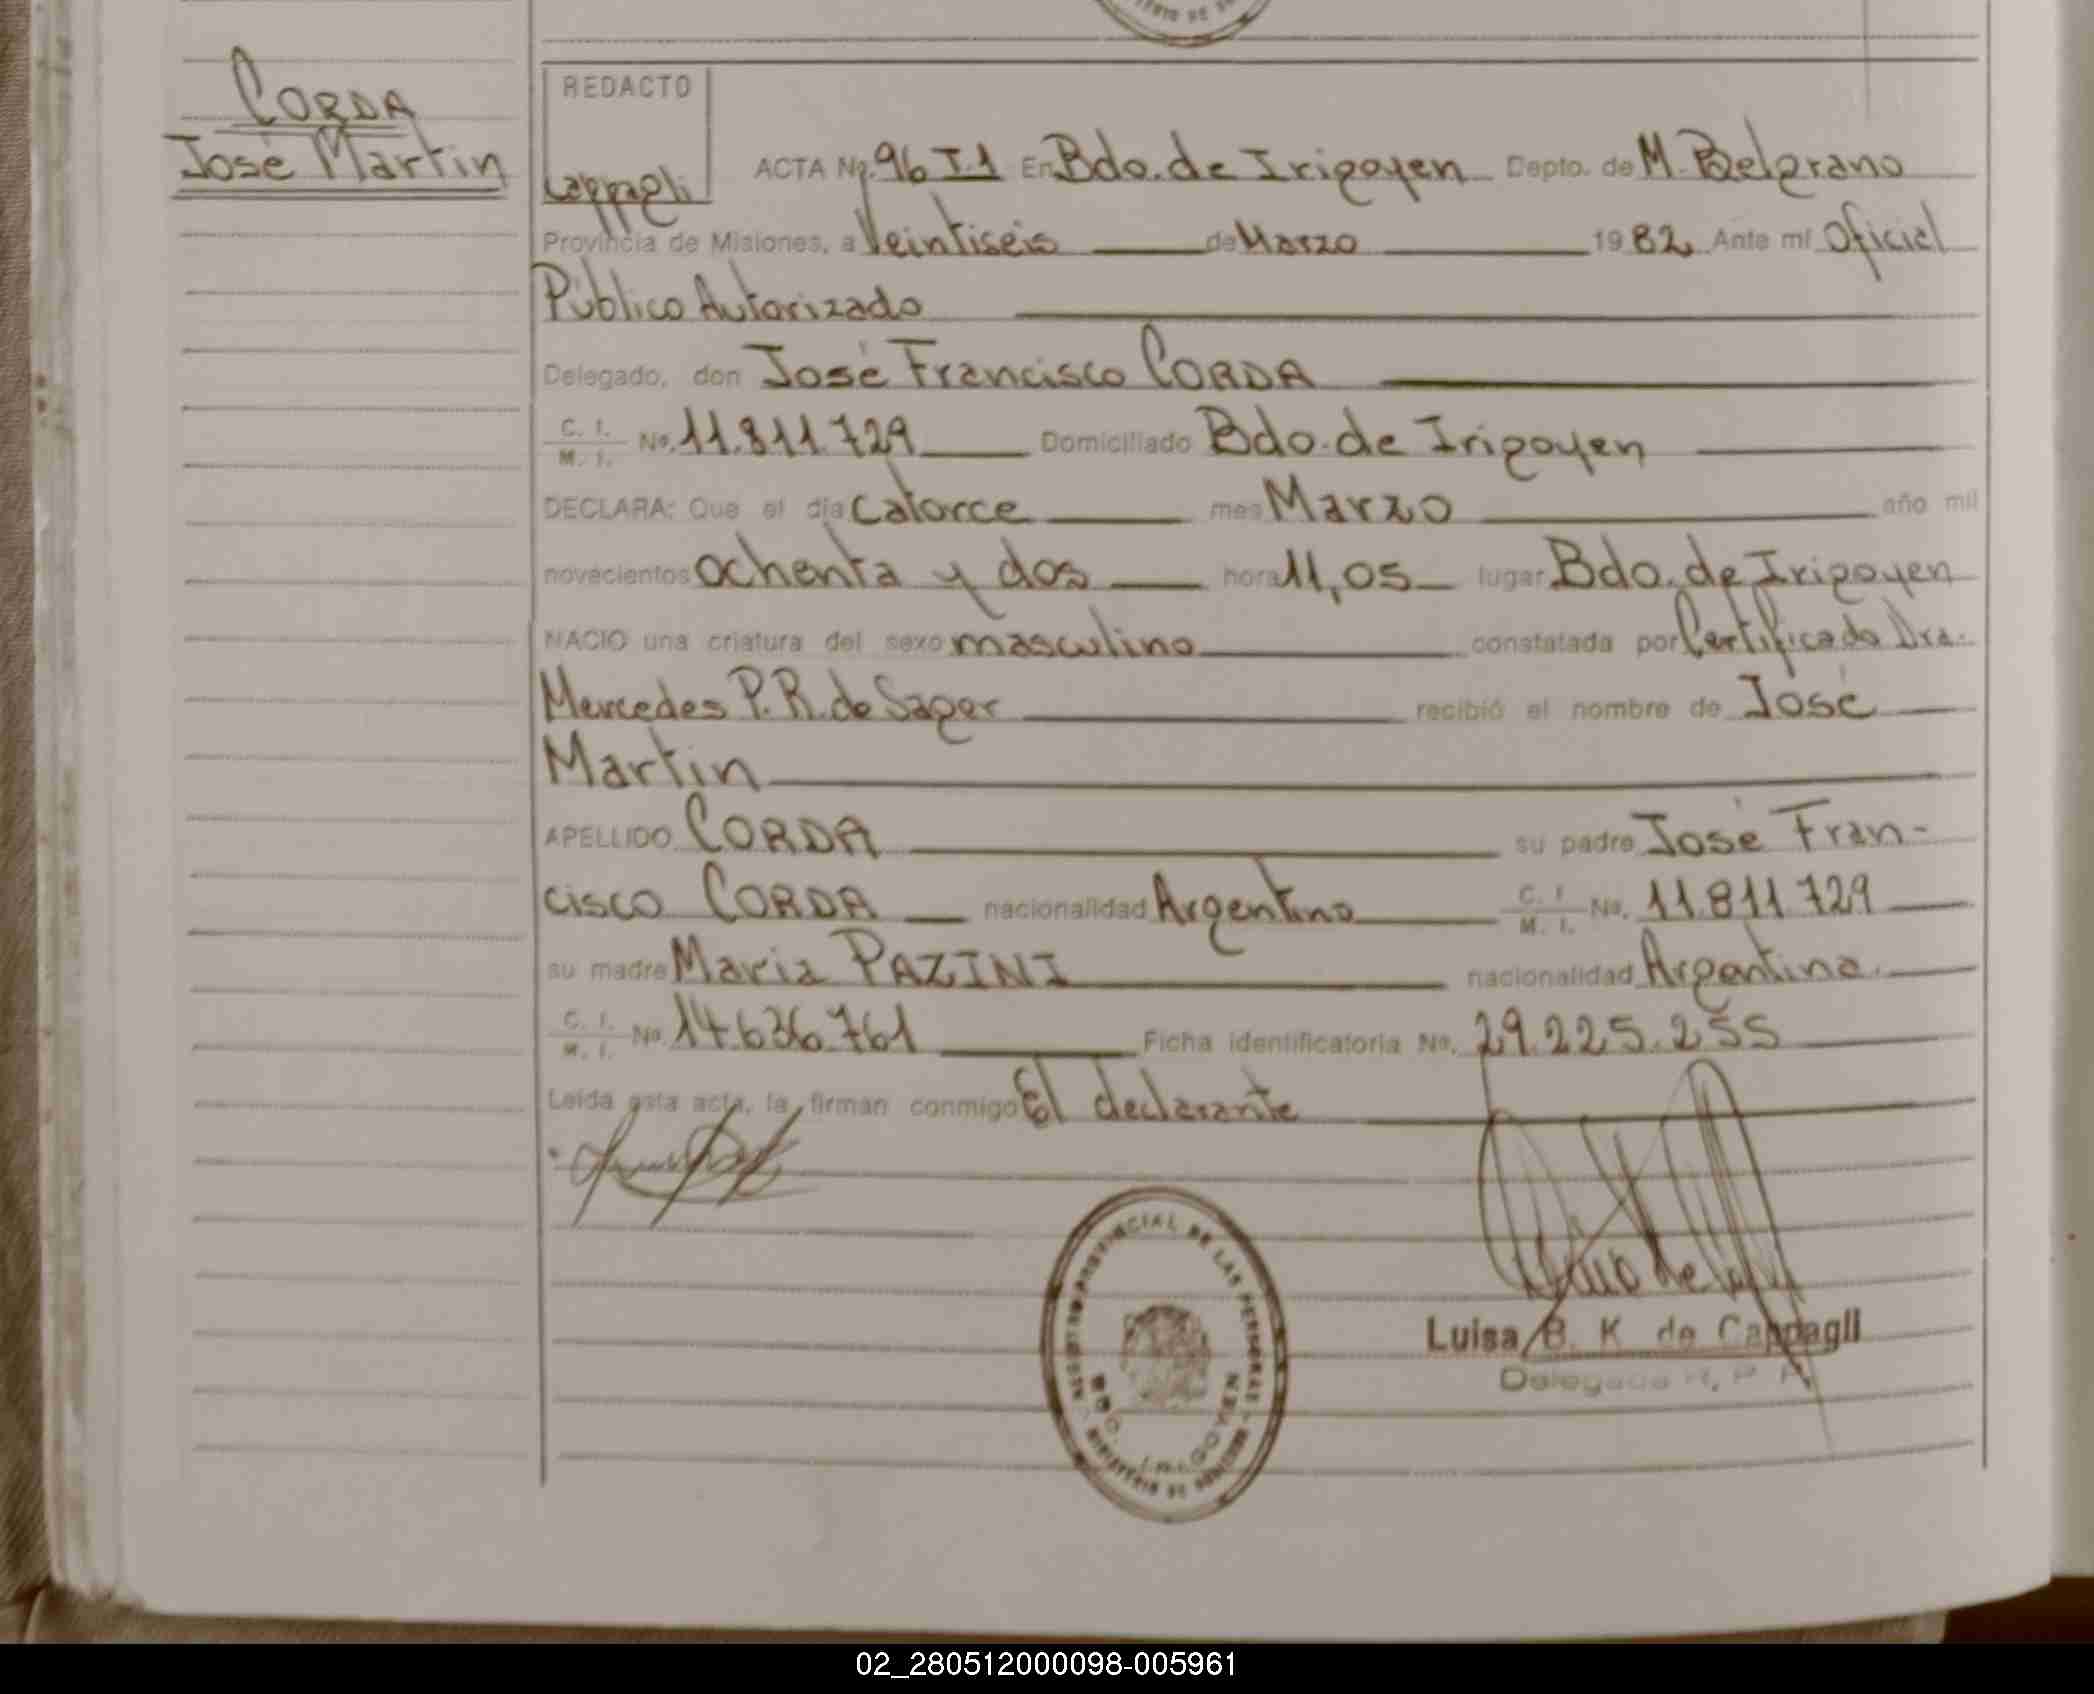 CORDA
José Martin
REDACTO
Cappagli
ACTA No. 96 T.1 En Bdo. de Irigoyen Depto. de M. Belgrano
Provincia de Misiones, a Veintiseis de Marzo 19 82 Ante mí Oficial
Público Autorizado
Delegado, don José Francisco CORDA
C. I. / M. I. No. 11.811.729 Domiciliado Bdo. de Irigoyen
DECLARA: Que el día catorce mes Marzo año mil
novecientos ochenta y dos hora 11,05 lugar Bdo. de Irigoyen
NACIO una criatura del sexo masculino constatada por Certificado Dra.
Mercedes P. R. de Sager recibió el nombre de José
Martin
APELLIDO CORDA su padre José Fran-
cisco CORDA nacionalidad Argentino C. I. / M. I. No. 11.811.729
su madre Maria PAZINI nacionalidad Argentina
C. I. / M. I. No. 14.636.761 Ficha identificatoria No. 29.225.255
Leída esta acta, la firman conmigo El declarante
PROVINCIAL DE LAS PERSONAS
BDO. IRIGOYEN
MINISTERIO DE
Luisa B. K de Cappagli
Delegada R. P.
02_280512000098-005961